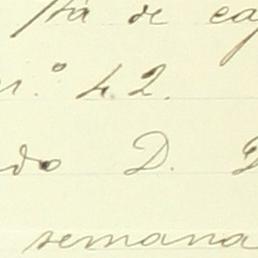 tá de ca
n.º 42.
do D. D
semana